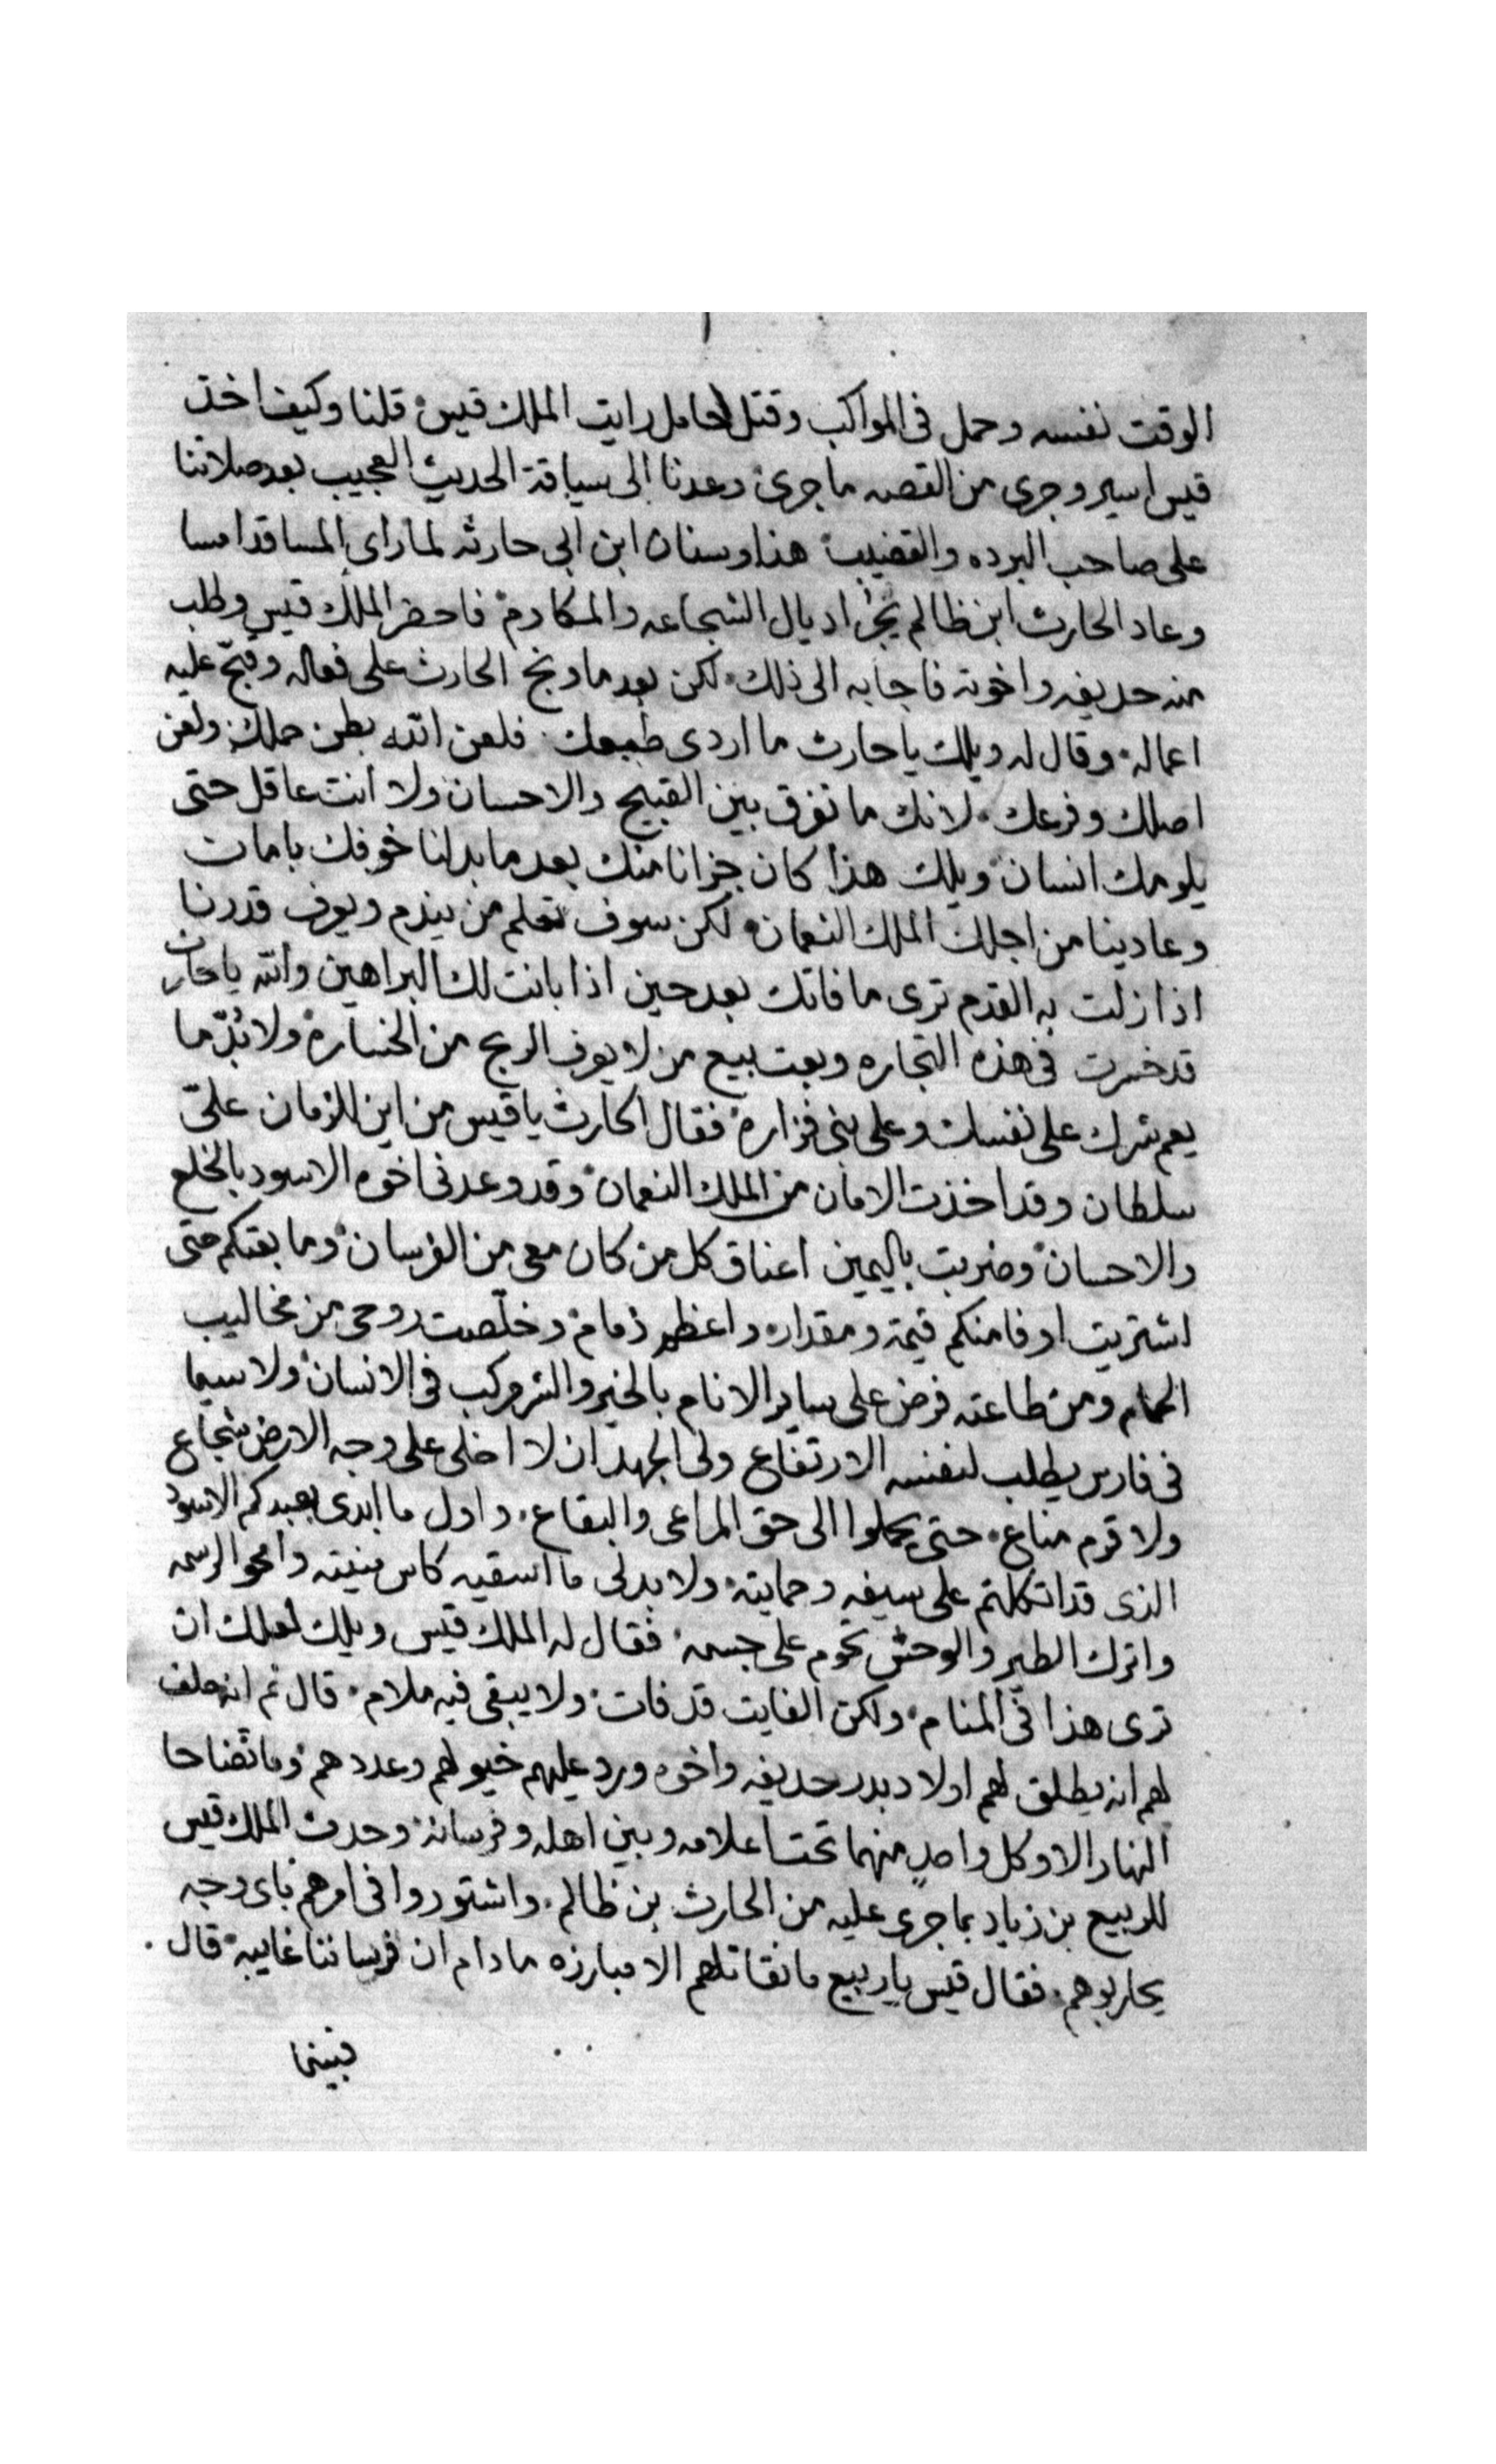 الوقت نفسه وحمل في المواكب وقتل حامل رايت الملك قيس قلنا وكيف اخذ
قيس اسير وجرى من القصه ما جرى وعدنا الى سياقة الحديث العجيب بعد صلاتنا
على صاحب البرده والقضيب هذا وسنان ابن ابى حارثه لما راى المسا قد امسا
وعاد الحارث ابن ظالم يجر اديال الشجاعه والمكارم فاحضر الملك قيس وطلب
منه حديفه واخوته فاجابه الى ذلك لكن بعد ما وبخ الحارث على فعاله وقبح عليه
اعماله وقال له ويلك يا حارث ما اردى طبعك فلعن الله بطن حملك ولعن
اصلك وفرعك لانك ما تفرق بين القبيح والاحسان ولا انت عاقل حتى
يلومك انسان ويلك هذا كان جزانا منك بعد ما بدلنا خوفك بامات
وعادينا من اجلك الملك النعمان لكن سوف تعلم من يندم ويعرف قدرنا
اذا زلت به القدم ترى ما فاتك بعد حين اذا بانت لك البراهين والله يا حارث
قد خسرت في هذه التجاره وبعت بيع من لا يعرف الربح من الخساره ولا بد ما
يعم شرك على نفسك وعلى بنى فزاره فقال الحارث يا قيس من اين للزمان على
سلطان وقد اخذت الامان من الملك النعمان وقد وعدنى اخوه الاسود بالخلع
والاحسان وضربت باليمين اعناق كل من كان معى من الفرسان وما بعتكم حتى
اشتريت اوفا منكم قيمة ومقدار واعظم ذمام وخلصت روحى من مخاليب
الحمام ومن طاعته فرض على ساير الانام بالخير والشر مركب في الانسان ولا سيما
في فارس يطلب لنفسه الارتفاع ولى الجهد ان لا اخلى على وجه الارض شجاع
ولا قرم مناع حتى يحملوا الى حق المراعى والبقاع واول ما ابدى بعبدكم الاسود
الذى قد اتكلتم على سيفه وحمايته ولا بد لى ما اسقيه كاس منيته وامحو الرسمه
واترك الطير والوحش تحوم على جسمه فقال له الملك قيس ويلك لعلك ان
ترى هذا في المنام ولكن الفايت قد فات ولا يبقى فيه ملام قال ثم انه حلف
لهم انه يطلق لهم اولاد بدر حديفه واخوه ورد عليهم خيولهم وعددهم وما تضاحا
النهار الا وكل واحد منهما تحت اعلامه وبين اهله وفرسانه وحدث الملك قيس
للربيع بن زياد بما جرى عليه من الحارث بن ظالم واشتوروا في امرهم باى وجه
يحاربوهم فقال قيس يا ربيع ما نقاتلهم الا مبارزه ما دام ان فرساننا غايبه قال
فبينما